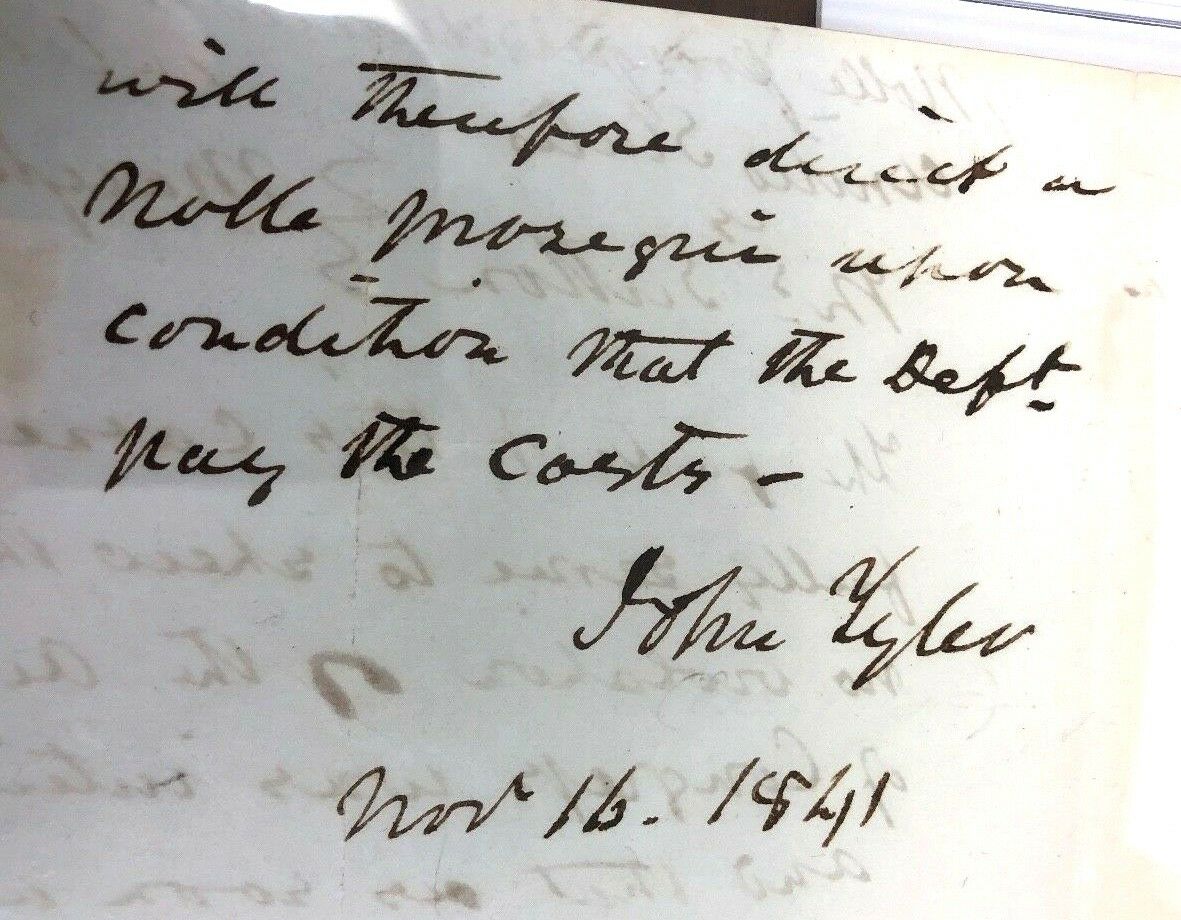 will therefore direct a
Nolle prosequi upon
condition that the Deft.
pay the costs -
John Tyler
Novr 16. 1841